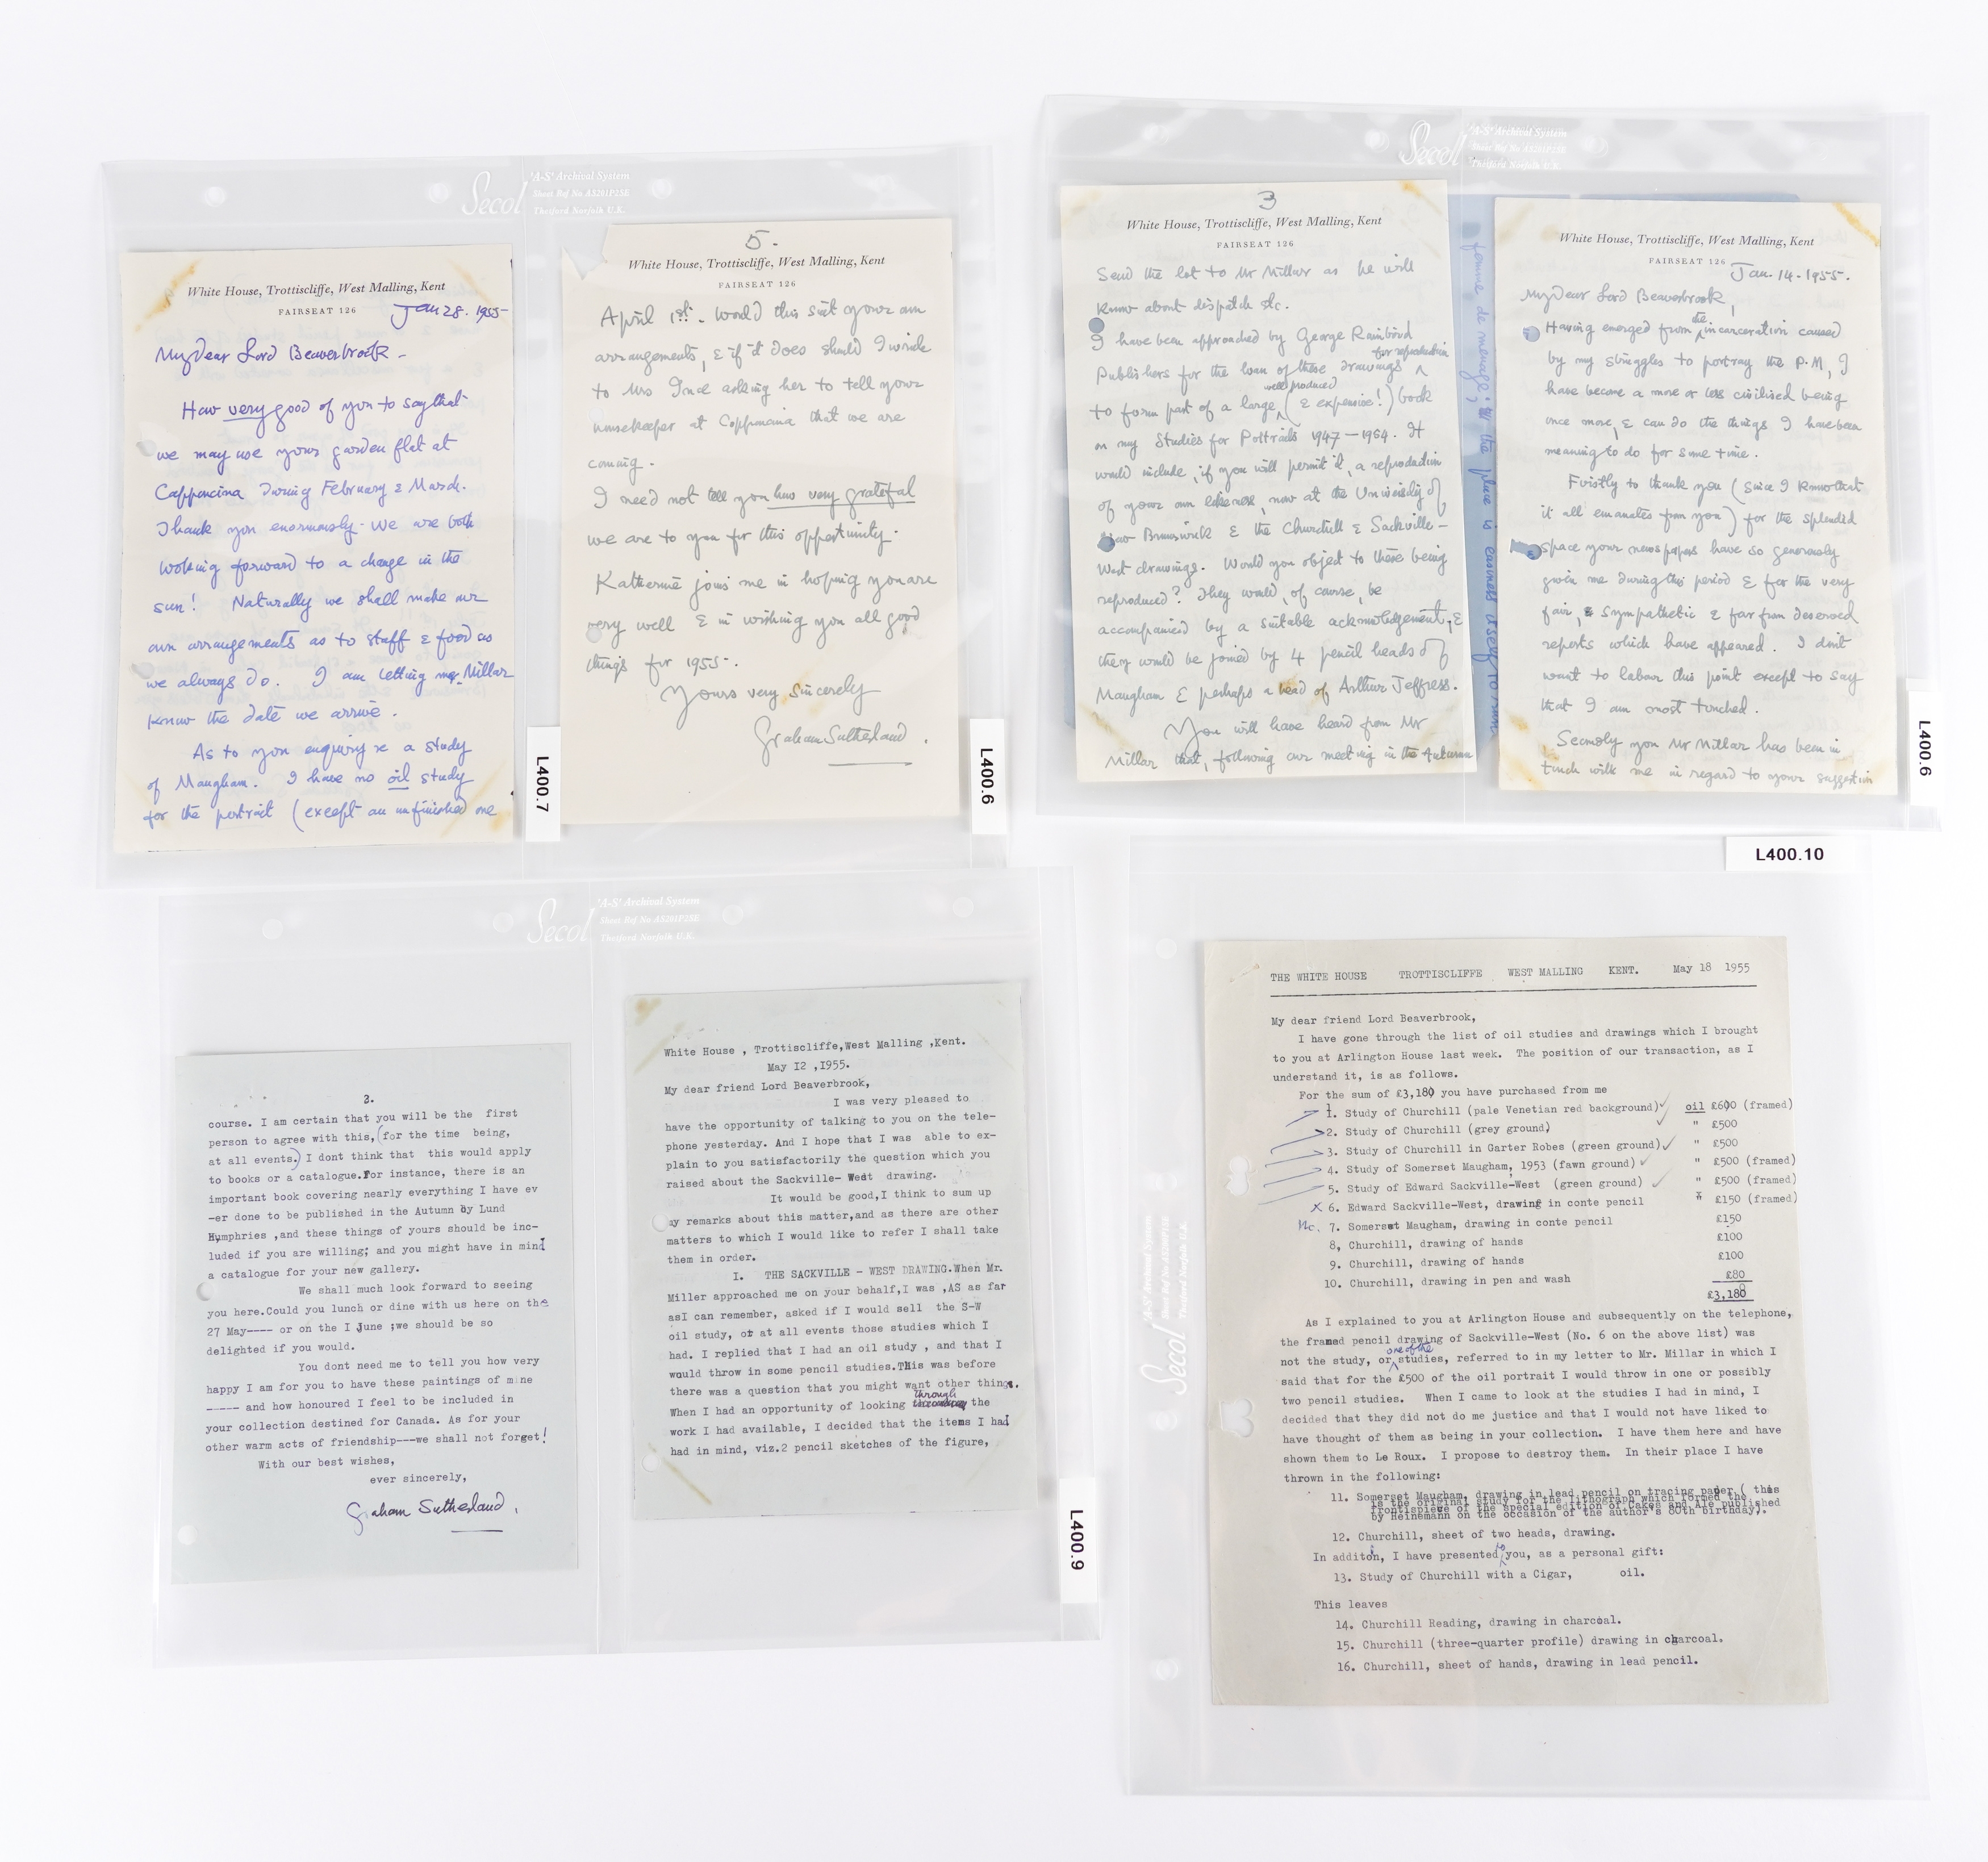 Secol
'A-S' Archival System
Sheet Ref No AS201P2SE
Thetford Norfolk U.K.
White House, Trottiscliffe, West Malling, Kent
FAIRSEAT 126
Jan 28. 1955
My Dear Lord Beaverbrook -
How very good of you to say that
we may use your garden flat at
Capponcina during February & March.
Thank you enormously. We are both
looking forward to a change in the
sun! Naturally we shall make our
own arrangements as to staff & food as
we always do. I am letting Millar
know the date we arrive.
As to you enquiry re a study
of Maugham. I have no oil study
for the portrait (except an unfinished one
L400.7
5.
White House, Trottiscliffe, West Malling, Kent
FAIRSEAT 126
April 1st. Would this suit your own
arrangements, & if it does should I write
to Mrs Ince asking her to tell your
housekeeper at Capponcina that we are
coming.
I need not tell you how very grateful
we are to you for this opportunity.
Katherine joins me in hoping you are
very well & in wishing you all good
things for 1955-.
Yours very sincerely
Graham Sutherland.
L400.6
Secol
'A-S' Archival System
Sheet Ref No AS201P2SE
Thetford Norfolk U.K.
3
White House, Trottiscliffe, West Malling, Kent
FAIRSEAT 126
Send the lot to Mr Millar as he will
know about dispatch etc.
I have been approached by George Rainbird
for reproduction
Publishers for the loan of these drawings
well produced
to form part of a large (& expensive!) book
on my Studies for Portraits 1947-1954. It
would include, if you will permit it, a reproduction
of your own likeness, now at the University of
New Brunswick & the Churchill & Sackville-
West drawings. Would you object to these being
reproduced? They would, of course, be
accompanied by a suitable acknowledgement, &
they would be joined by 4 pencil heads of
Maugham & perhaps a head of Arthur Jeffress.
You will have heard from Mr
Millar that, following our meeting in the Autumn
femme de menage; the place is
White House, Trottiscliffe, West Malling, Kent
FAIRSEAT 126
Jan. 14. 1955.
My Dear Lord Beaverbrook,
the
Having emerged from incarceration caused
by my struggles to portray the P.M, I
have become a more or less civilised being
once more, & can do the things I have been
meaning to do for some time.
Firstly to thank you (since I know that
it all emanates from you) for the splendid
space your newspapers have so generously
given me during this period & for the very
fair, & sympathetic & far from deserved
reports which have appeared. I don't
want to labour this point except to say
that I am most touched.
Secondly you Mr Millar has been in
touch with me in regard to your suggestion
L400.6
Secol
'A-S' Archival System
Sheet Ref No AS201P2SE
Thetford Norfolk U.K.
3.
course. I am certain that you will be the first
person to agree with this,(for the time being,
at all events.) I dont think that this would apply
to books or a catalogue.For instance, there is an
important book covering nearly everything I have ev
-er done to be published in the Autumn by Lund
Humphries ,and these things of yours should be inc-
luded if you are willing; and you might have in mind
a catalogue for your new gallery.
We shall much look forward to seeing
you here.Could you lunch or dine with us here on the
27 May---- or on the I June ;we should be so
delighted if you would.
You dont need me to tell you how very
happy I am for you to have these paintings of mine
----- and how honoured I feel to be included in
your collection destined for Canada. As for your
other warm acts of friendship---we shall not forget!
With our best wishes,
ever sincerely,
Graham Sutherland.
White House , Trottiscliffe,West Malling ,Kent.
May I2 ,I955.
My dear friend Lord Beaverbrook,
I was very pleased to
have the opportunity of talking to you on the tele-
phone yesterday. And I hope that I was able to ex-
plain to you satisfactorily the question which you
raised about the Sackville- West drawing.
It would be good,I think to sum up
my remarks about this matter,and as there are other
matters to which I would like to refer I shall take
them in order.
I. THE SACKVILLE - WEST DRAWING.When Mr.
Miller approached me on your behalf,I was ,AS as far
asI can remember, asked if I would sell the S-W
oil study, or at all events those studies which I
had. I replied that I had an oil study , and that I
would throw in some pencil studies.This was before
there was a question that you might want other things.
through
When I had an opportunity of looking the
work I had available, I decided that the items I had
had in mind, viz.2 pencil sketches of the figure,
L400.9
L400.10
Secol
'A-S' Archival System
THE WHITE HOUSE TROTTISCLIFFE WEST MALLING KENT. May 18 1955
My dear friend Lord Beaverbrook,
I have gone through the list of oil studies and drawings which I brought
to you at Arlington House last week. The position of our transaction, as I
understand it, is as follows.
For the sum of £3,180 you have purchased from me
1. Study of Churchill (pale Venetian red background) oil £600 (framed)
2. Study of Churchill (grey ground) " £500
3. Study of Churchill in Garter Robes (green ground) " £500
4. Study of Somerset Maugham, 1953 (fawn ground) " £500 (framed)
5. Study of Edward Sackville-West (green ground) " £500 (framed)
x 6. Edward Sackville-West, drawing in conte pencil " £150 (framed)
7. Somerset Maugham, drawing in conte pencil £150
8, Churchill, drawing of hands £100
9. Churchill, drawing of hands £100
10. Churchill, drawing in pen and wash £80
£3,180
As I explained to you at Arlington House and subsequently on the telephone,
the framed pencil drawing of Sackville-West (No. 6 on the above list) was
one of the
not the study, or studies, referred to in my letter to Mr. Millar in which I
said that for the £500 of the oil portrait I would throw in one or possibly
two pencil studies. When I came to look at the studies I had in mind, I
decided that they did not do me justice and that I would not have liked to
have thought of them as being in your collection. I have them here and have
shown them to Le Roux. I propose to destroy them. In their place I have
thrown in the following:
11. Somerset Maugham, drawing in lead pencil on tracing paper ( this
is the original study for the lithograph which formed the
frontispiece of the special edition of Cakes and Ale published
by Heinemann on the occasion of the author's 80th birthday).
12. Churchill, sheet of two heads, drawing.
to
In additon, I have presented you, as a personal gift:
13. Study of Churchill with a Cigar, oil.
This leaves
14. Churchill Reading, drawing in charcoal.
15. Churchill (three-quarter profile) drawing in charcoal.
16. Churchill, sheet of hands, drawing in lead pencil.